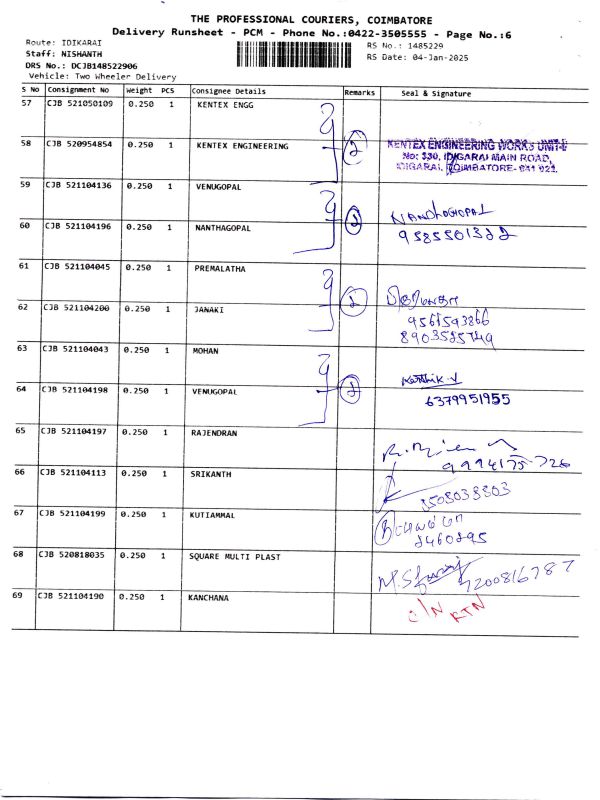 THE PROFESSIONAL COURIERS, COIMBATORE
Delivery Runsheet - PCM - Phone No.:0422-3505555 - Page No.:6
Route: IDIKARAI
RS No.: 1485229
Staff: NISHANTH
RS Date: 04-Jan-2025
DRS No.: DCJB148522906
Vehicle: Two Wheeler Delivery
S No Consignment No Weight PCS Consignee Details Remarks Seal & Signature
57 CJB 521050109 0.250 1 KENTEX ENGG
58 CJB 520954854 0.250 1 KENTEX ENGINEERING 2 KENTEX ENGINEERING WORKS UNIT-I
No: 330, IDIGARAI MAIN ROAD,
IDIGARAI, COIMBATORE- 641 022.
59 CJB 521104136 0.250 1 VENUGOPAL
2 NANDHAGOPAL
60 CJB 521104196 0.250 1 NANTHAGOPAL 9585501322
61 CJB 521104045 0.250 1 PREMALATHA
2 பிரேமலதா
62 CJB 521104200 0.250 1 JANAKI 9561593866
8903525749
63 CJB 521104043 0.250 1 MOHAN
Karthik.V
64 CJB 521104198 0.250 1 VENUGOPAL 2 6379951955
65 CJB 521104197 0.250 1 RAJENDRAN
9994175726
66 CJB 521104113 0.250 1 SRIKANTH
8508038803
67 CJB 521104199 0.250 1 KUTIAMMAL
2460295
68 CJB 520818035 0.250 1 SQUARE MULTI PLAST
7200816787
69 CJB 521104190 0.250 1 KANCHANA C/N RTN